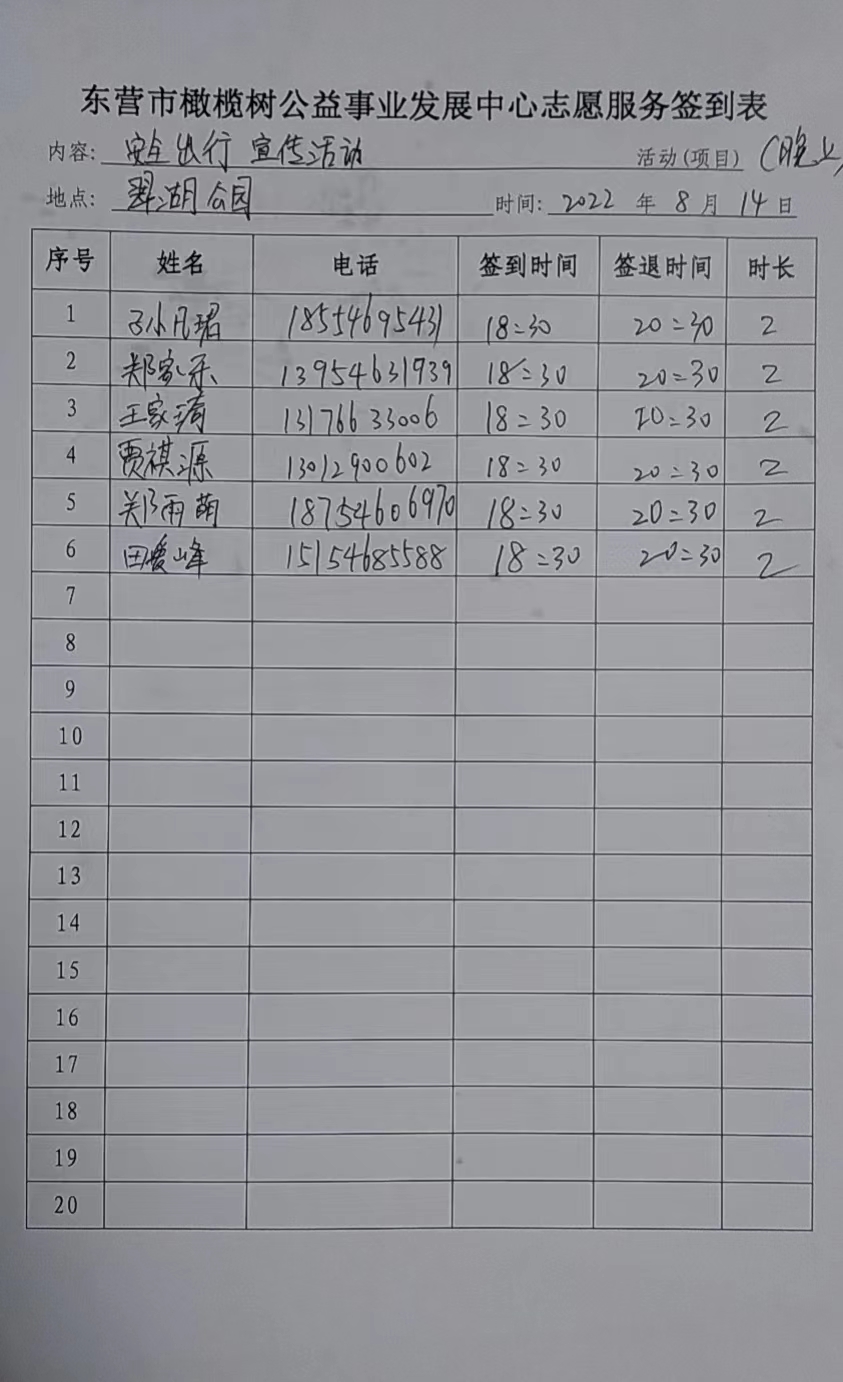 东营市橄榄树公益事业发展中心志愿服务签到表
内容: 安全出行 宣传活动 活动(项目) (晚上)
地点: 翠湖公园 时间: 2022 年 8 月 14 日
序号 姓名 电话 签到时间 签退时间 时长
1 孙凡珺 18554695431 18:30 20:30 2
2 郑家乐 13954631939 18:30 20:30 2
3 王家琦 13176633006 18:30 20:30 2
4 贾祺源 13012900602 18:30 20:30 2
5 郑雨萌 18754606970 18:30 20:30 2
6 田爱峰 15154685588 18:30 20:30 2
7
8
9
10
11
12
13
14
15
16
17
18
19
20